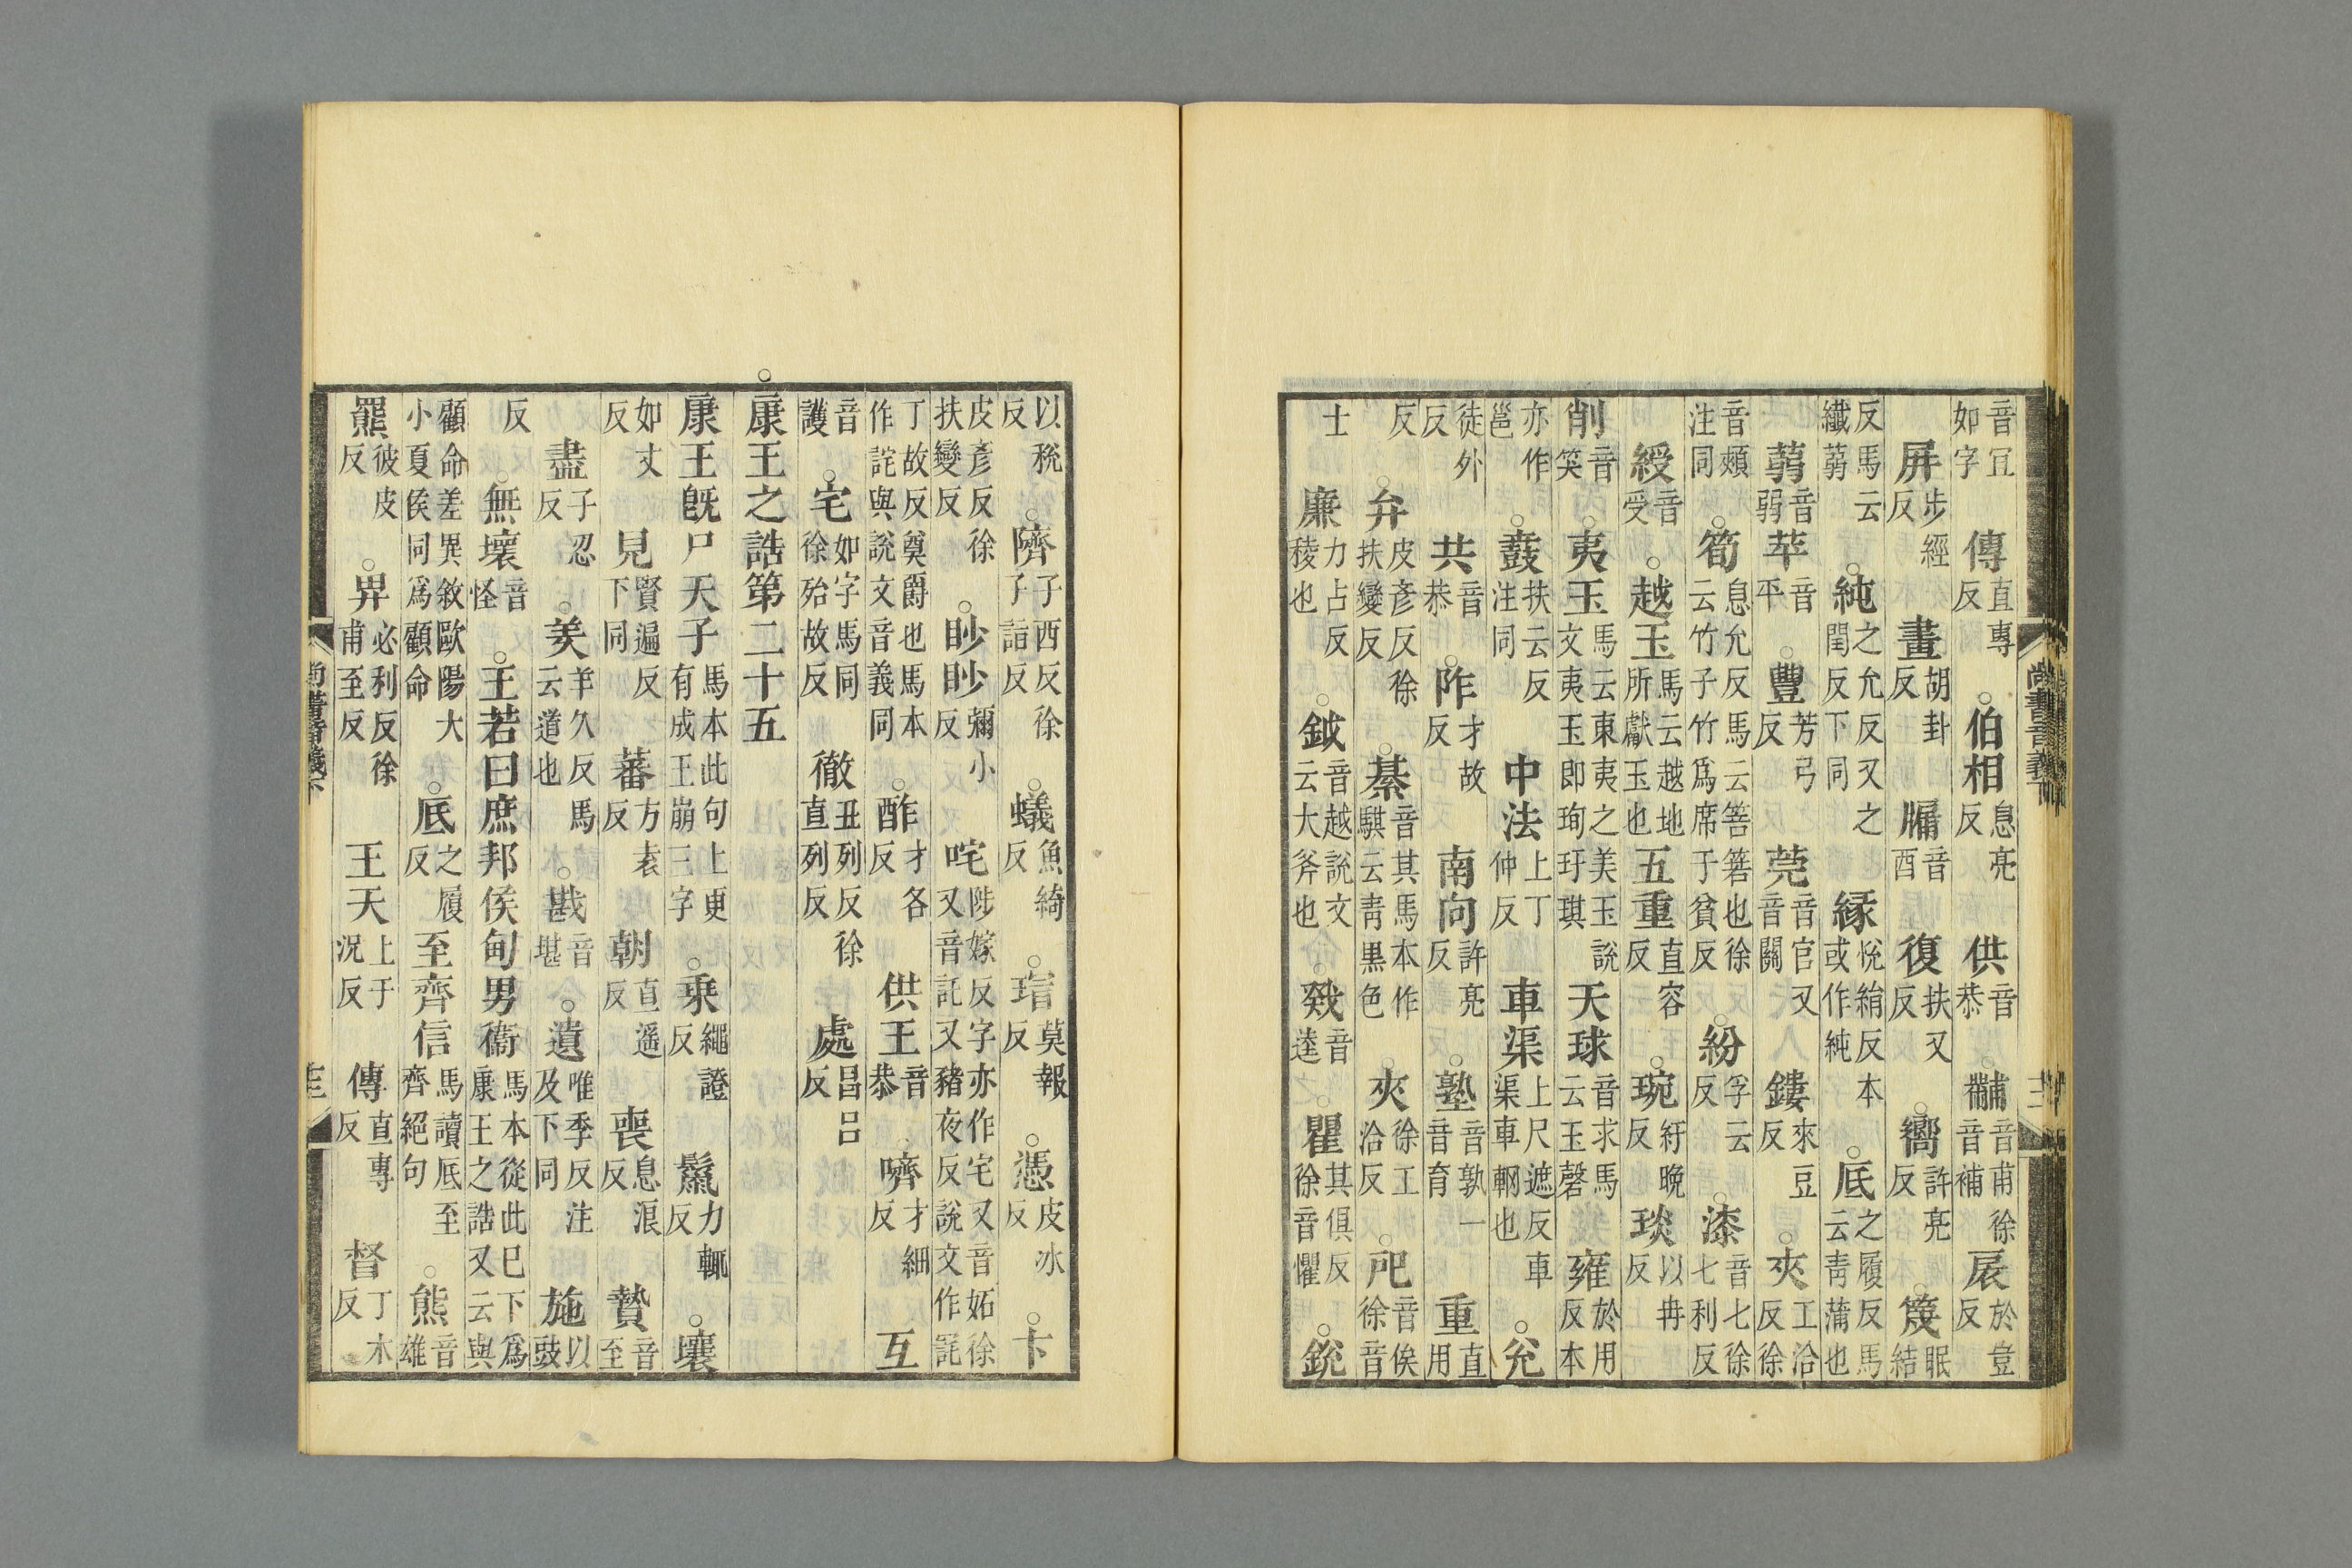 尚書音義下
音冝如字 傳直專反○伯相息亮反 供音恭○黼音甫徐音補 扆於豈反
屏步經反 畫胡卦反 牖音酉 復扶又反○嚮許亮反○篾眠結
反馬云纖蒻○純之允反又之閏反下同 緣悅絹反本或作純○底之履反馬云青蒲也
蒻音弱 苹音平○豐芳弓反 莞音官又音關 鏤來豆反○夾工洽反徐
音頰注同○筍息允反馬云箁箬也徐云竹子竹爲席于貧反○紛孚云反○漆音七徐七利反
綬音受○越玉馬云越地所獻玉也 五重直容反○琬紆晚反 琰以冉反
削音笑○夷玉馬云東夷之美玉說文夷玉即珣玗琪 天球音求馬云玉磬 雍於用反本
亦作邕○鼖扶云反注同 中法上丁仲反 車渠上尺遮反車渠車輞也○兊
徒外反 共音恭○阼才故反 南向許亮反○塾音孰一音育 重直用
反○弁皮彥反徐扶變反○綦音其馬本作騏云青黑色○夾徐工洽反○戺音俟徐音
士 廉力占反稜也○鉞音越說文云大斧也○戣音逵○瞿其俱反徐音懼○銳
以稅反○隮子西反徐子詣反○蟻魚綺反○瑁莫報反○憑皮冰反○卞
皮彥反徐扶變反○眇眇彌小反 咤陟嫁反字亦作宅又音妬徐又音託又豬夜反說文作詫
丁故反奠爵也馬本作詫與說文音義同○酢才各反 供王音恭○嚌才細反 互
音護○宅如字馬同徐殆故反 徹丑列反徐直列反 處昌呂反
○康王之誥第二十五
康王旣尸天子馬本此句上更有成王崩三字○乗繩證反 鬛力輒反○壤
如丈反 見賢遍反下同 蕃方袁反 朝直遥反 喪息浪反 贄音至
盡子忍反○羑羊久反馬云道也○戡音堪○遺唯季反注及下同 施以豉
反○無壞音怪○王若曰庶邦侯甸男衞馬本從此已下爲康王之誥又云與
顧命差異敘歐陽大小夏侯同爲顧命○底之履反 至齊信馬讀底至齊絕句○熊音雄
羆彼皮反○畀必利反徐甫至反 王天上于況反 傳直專反 督丁木反
尚書音義下